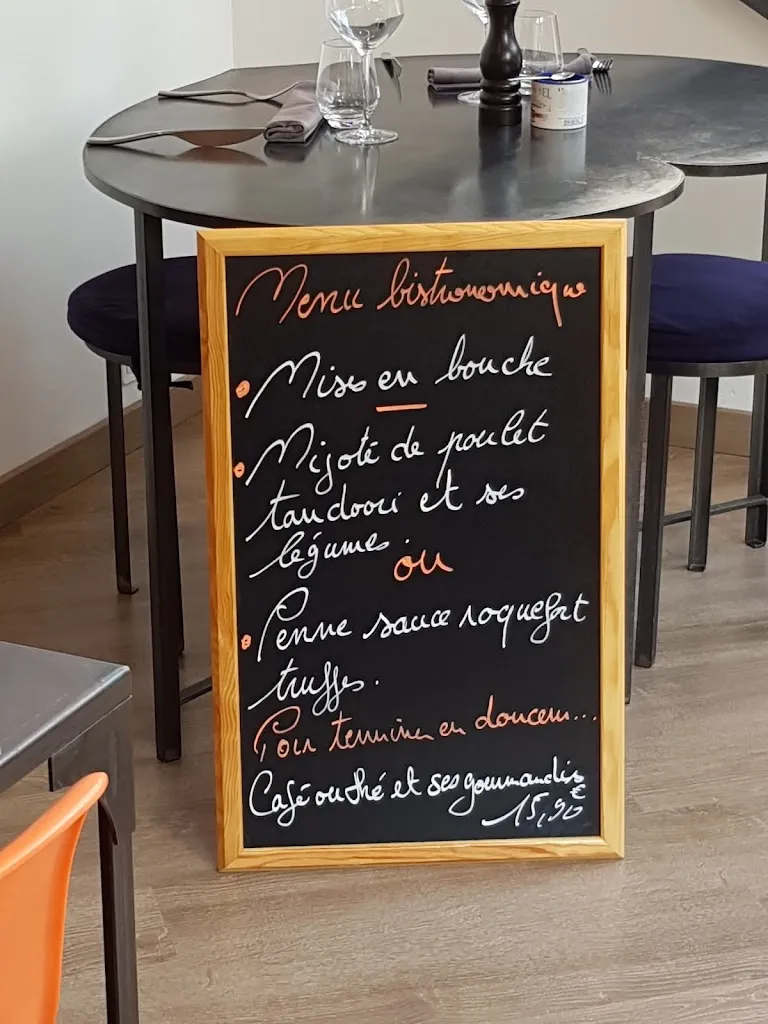 Menu bistronomique
• Mises en bouche
• Mijoté de poulet
tandoori et ses
légumes.
ou
• Penne sauce roquefort
truffes.
Pour terminer en douceur...
Café ou thé et ses gourmandises
€
15,90
SEL